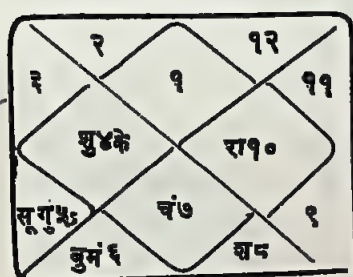 २ १२
३ १ ११
शु४के रा१०
सू गुं५ चं७ ९
बु मं ६ श८